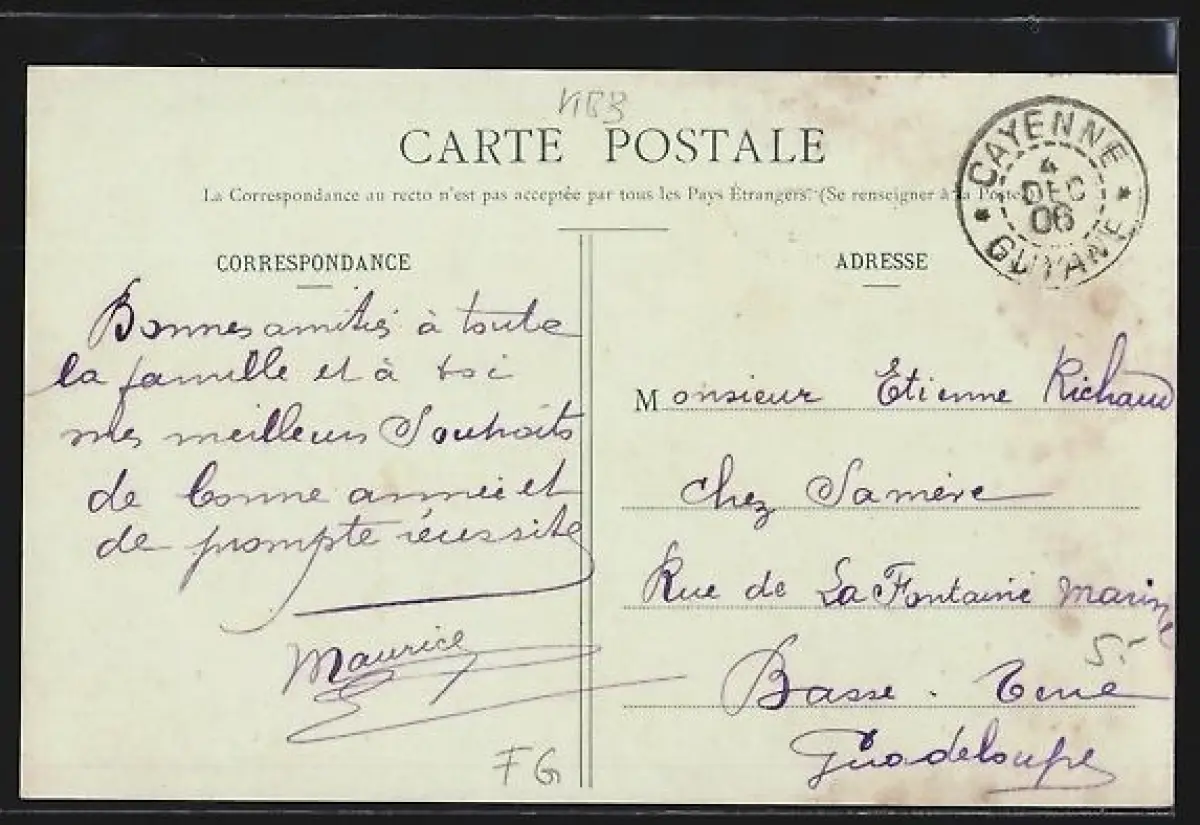 VIB3
CARTE POSTALE
La Correspondance au recto n'est pas acceptée par tous les Pays Étrangers. (Se renseigner à la Poste
CAYENNE
4
DEC
06
GUYANE
CORRESPONDANCE
Bonnes amitiés à toute
la famille et à toi
mes meilleurs Souhaits
de bonne année et
de prompte réussite
Maurice
FG
ADRESSE
Monsieur Etienne Richaud
chez Samère
Rue de La Fontaine Marine
5.
Basse. Terre
Guadeloupe